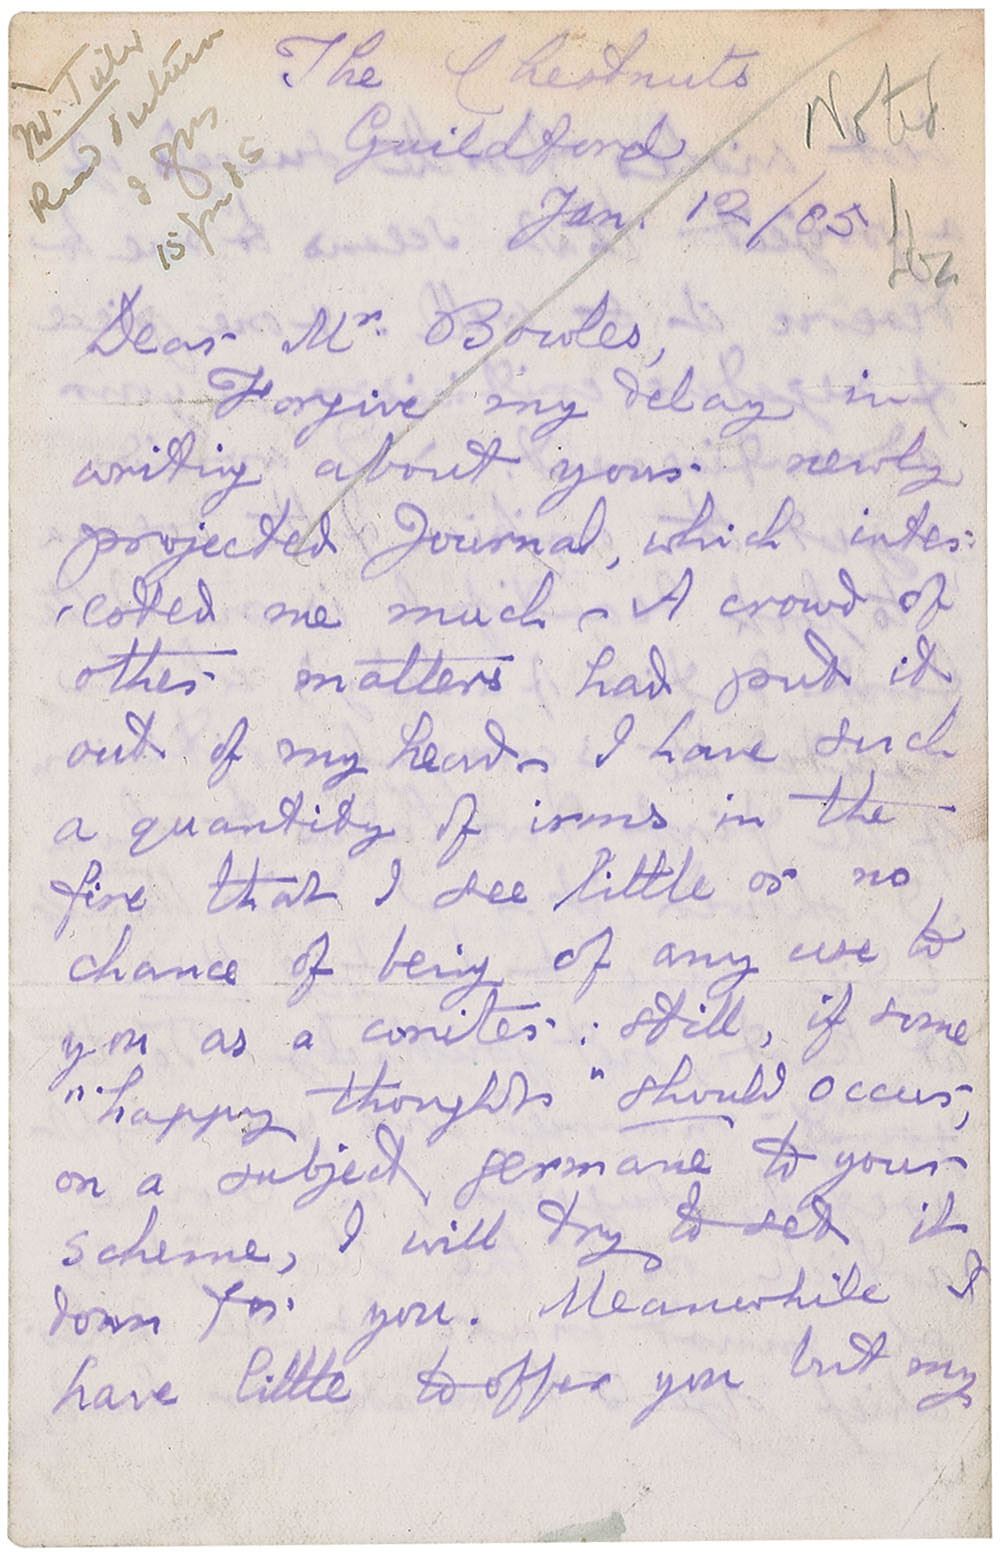 The Chestnuts
Guildford
Jan. 12/85
Noted
Dear Mr. Bowles,
Forgive my delay in
writing about your newly
projected Journal, which inter-
-ested me much. A crowd of
other matters had put it
out of my head. I have such
a quantity of irons in the
fire that I see little or no
chance of being of any use to
you as a writer: still, if some
"happy thoughts" should occur,
on a subject germane to your
scheme, I will try to set it
down for you. Meanwhile I
have little to offer you but my